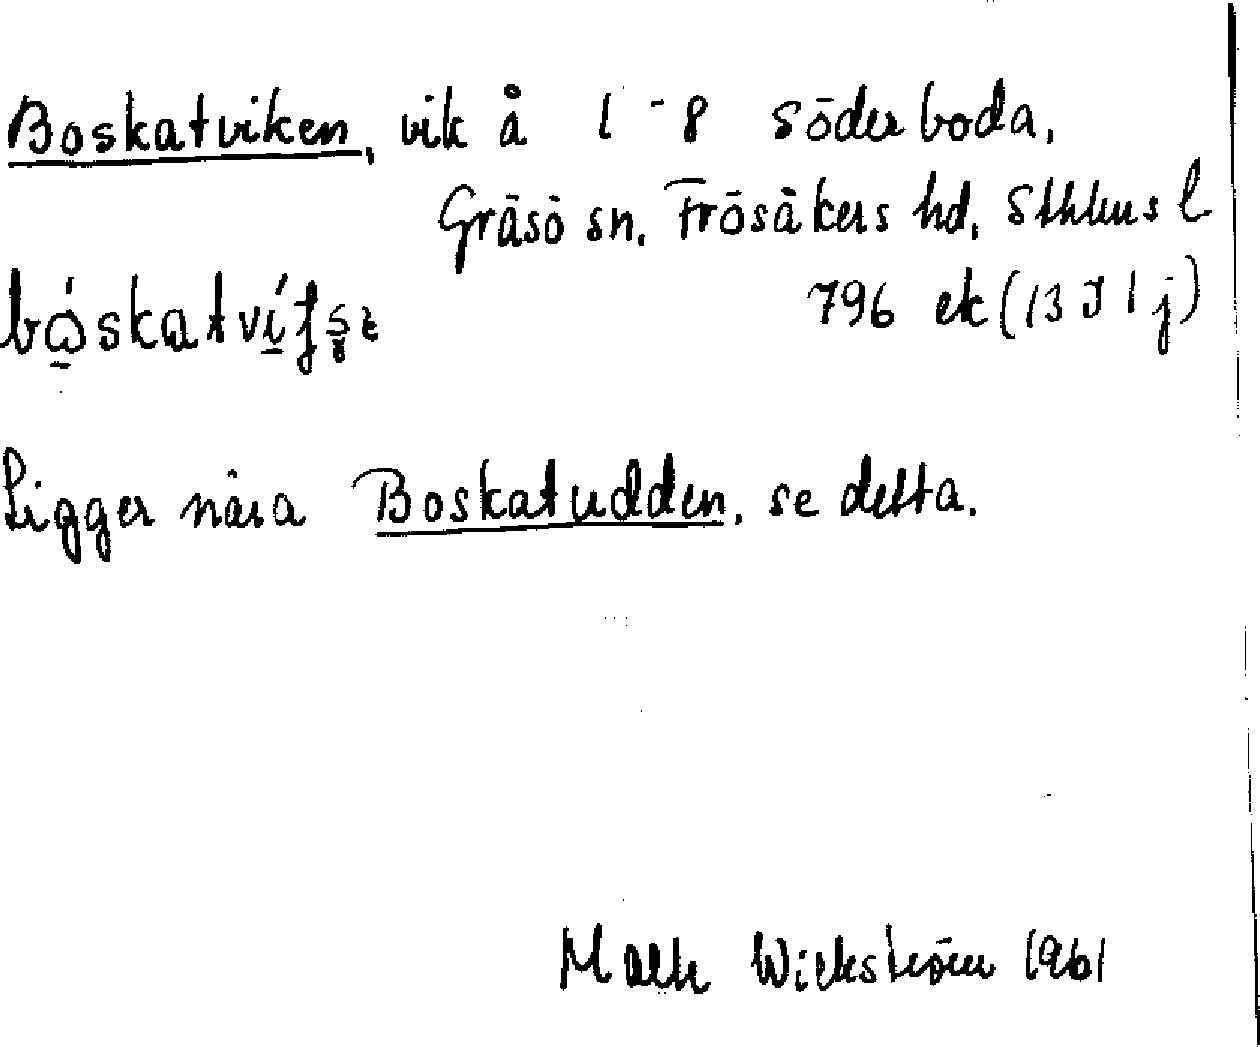 Boskatviken, vik å 1-8 Söderboda,
Gräsö sn. Frösåkers hd, Sthlms l
796 ek (13 I 1 j)
Ligger nära Boskatudden, se detta.
Wickström 1961